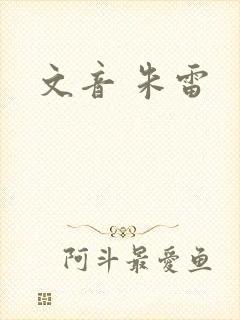 文音 朱雷
阿斗最愛鱼